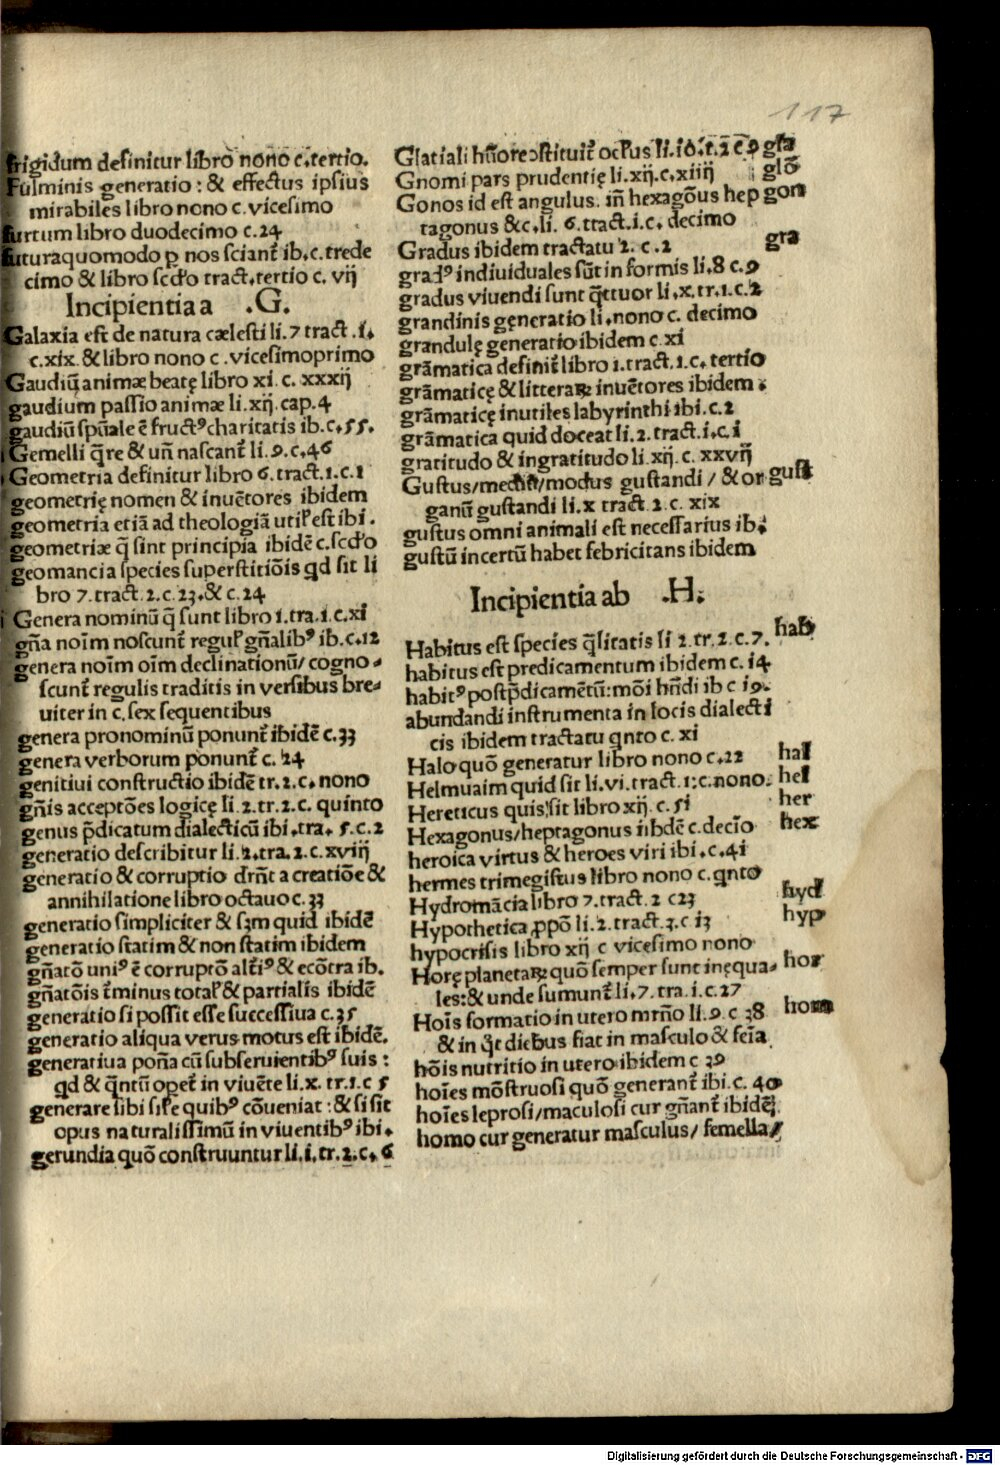 117
frigidum definitur libro nono c.tertio.
Fulminis generatio: & effectus ipsius
mirabiles libro nono c.vicesimo
furtum libro duodecimo c.24
futura quomodo p nos sciant̃ ib.c.trede
cimo & libro scd̃o tract.tertio c. vij
Incipientia a .G.
Galaxia est de natura cælesti li.7 tract.i.
c.xix.&libro nono c.vicesimoprimo
Gaudiũ animæ beatę libro xi.c.xxxij
gaudium passio animæ li.xij.cap.4
gaudiũ spũale ẽ fructꝰ charitatis ib.c.55.
Gemelli q̃re & uñ nascant̃ li.9.c.46
Geometria definitur libro 6.tract.1.c.1
geometrię nomen & inuẽtores ibidem
geometria etiã ad theologiã util̃ est ibi.
geometriæ q̃ sint principia ibidẽ c.scd̃o
geomancia species superstitiõis qd sit li
bro 7.tract.2.c.23.& c.24
Genera nominũ q̃ sunt libro 1.tra.1.c.xi
gña noĩm noscunt̃ regul̃ gñalibꝰ ib.c.12
genera noĩm oĩm declinationũ/ cogno-
scunt̃ regulis traditis in versibus bre-
uiter in c.sex sequentibus
genera pronominũ ponunt̃ ibidẽ c.33
genera verborum ponunt̃ c. 24
genitiui constructio ibidẽ tr.2.c.nono
gñis acceptões logicę li.2.tr.2.c. quinto
genus p̃dicatum dialecticũ ibi.tra. 5.c.2
generatio describitur li.2.tra.2.c.xviij
generatio & corruptio drñt a creatiõe &
annihilatione libro octauo c.33
generatio simpliciter & sꝫm quid ibidẽ
generatio statim & non statim ibidem
gñatõ uniꝰ ẽ corruptõ alt̃iꝰ & ecõtra ib.
gñatõis t̃minus total̃ & partialis ibidẽ
generatio si possit esse successiua c.35
generatio aliqua verus motus est ibidẽ.
generatiua poña cũ subseruientibꝰ suis:
qd & q̃ntũ opet̃ in viuẽte li.x. tr.1.c 5
generare sibi sil̃e quibꝰ cõueniat:& si sit
opus naturalissimũ in viuentibꝰ ibi.
gerundia quõ construuntur li.i.tr.2.c.6
Glatiali hũore ↄstituit̃ ocl̃us li.10.t.2 c 9 gla
Gnomi pars prudentię li.xij.c.xiiij glõ
Gonos id est angulus. iñ hexagõus hep gon
tagonus &c.li. 6.tract.i.c. decimo
Gradus ibidem tractatu 2. c.2 gra
gradꝰ indiuiduales sũt in formis li.8 c.9
gradus viuendi sunt q̃ttuor li.x.tr.1.c.2
grandinis gęneratio li.nono c. decimo
grandulę generatio ibidem c.xi
grãmatica definit̃ libro 1.tract.1.c.tertio
grãmaticę & litteraꝝ inuẽtores ibidem.
grãmaticę inutiles labyrinthi ibi.c.2
grãmatica quid doceat li.2.tract.i.c.i
gratitudo & ingratitudo li.xij.c. xxvij
Gustus/mediũ/modus gustandi / & or gust
ganũ gustandi li.x tract.2.c. xix
gustus omni animali est necessarius ib.
gustũ incertũ habet febricitans ibidem
Incipientia ab .H.
Habitus est species q̃litatis li 2.tr.2.c.7. hab
habitus est predicamentum ibidem c.14
habitꝰ postp̃dicamẽtũ:mõi hñdi ib c 19.
abundandi instrumenta in locis dialecti
cis ibidem tractatu qnto c.xi
Halo quõ generatur libro nono c.22 hal
Helmuaim quid sit li.vi.tract.1:c.nono. hel
Hereticus quis sit libro xij.c.51 her
Hexagonus/heptagonus ĩibdẽ c.decĩo hex
heroica virtus & heroes viri ibi.c.41
hermes trimegistus libro nono c.qnto
Hydromãcia libro 7.tract.2 c23 hyd
Hypothetica ꝓpõ li.2.tract.3.c 13 hyp
hypocrisis libro xij c vicesimo nono
Horę planetaꝝ quõ semper sunt inęqua- hor
les:& unde sumunt̃ li.7.tra.i.c.27
Hoĩs formatio in utero mrño li.9.c 38 hom
& in q̃t diebus fiat in masculo & feĩa
hõis nutritio in utero ibidem c 39
hoĩes mõstruosi quõ generant̃ ibi.c. 40
hoĩes leprosi/maculosi cur gñant̃ ibidẽ.
homo cur generatur masculus/ femella/
Digitalisierung gefördert durch die Deutsche Forschungsgemeinschaft - DFG